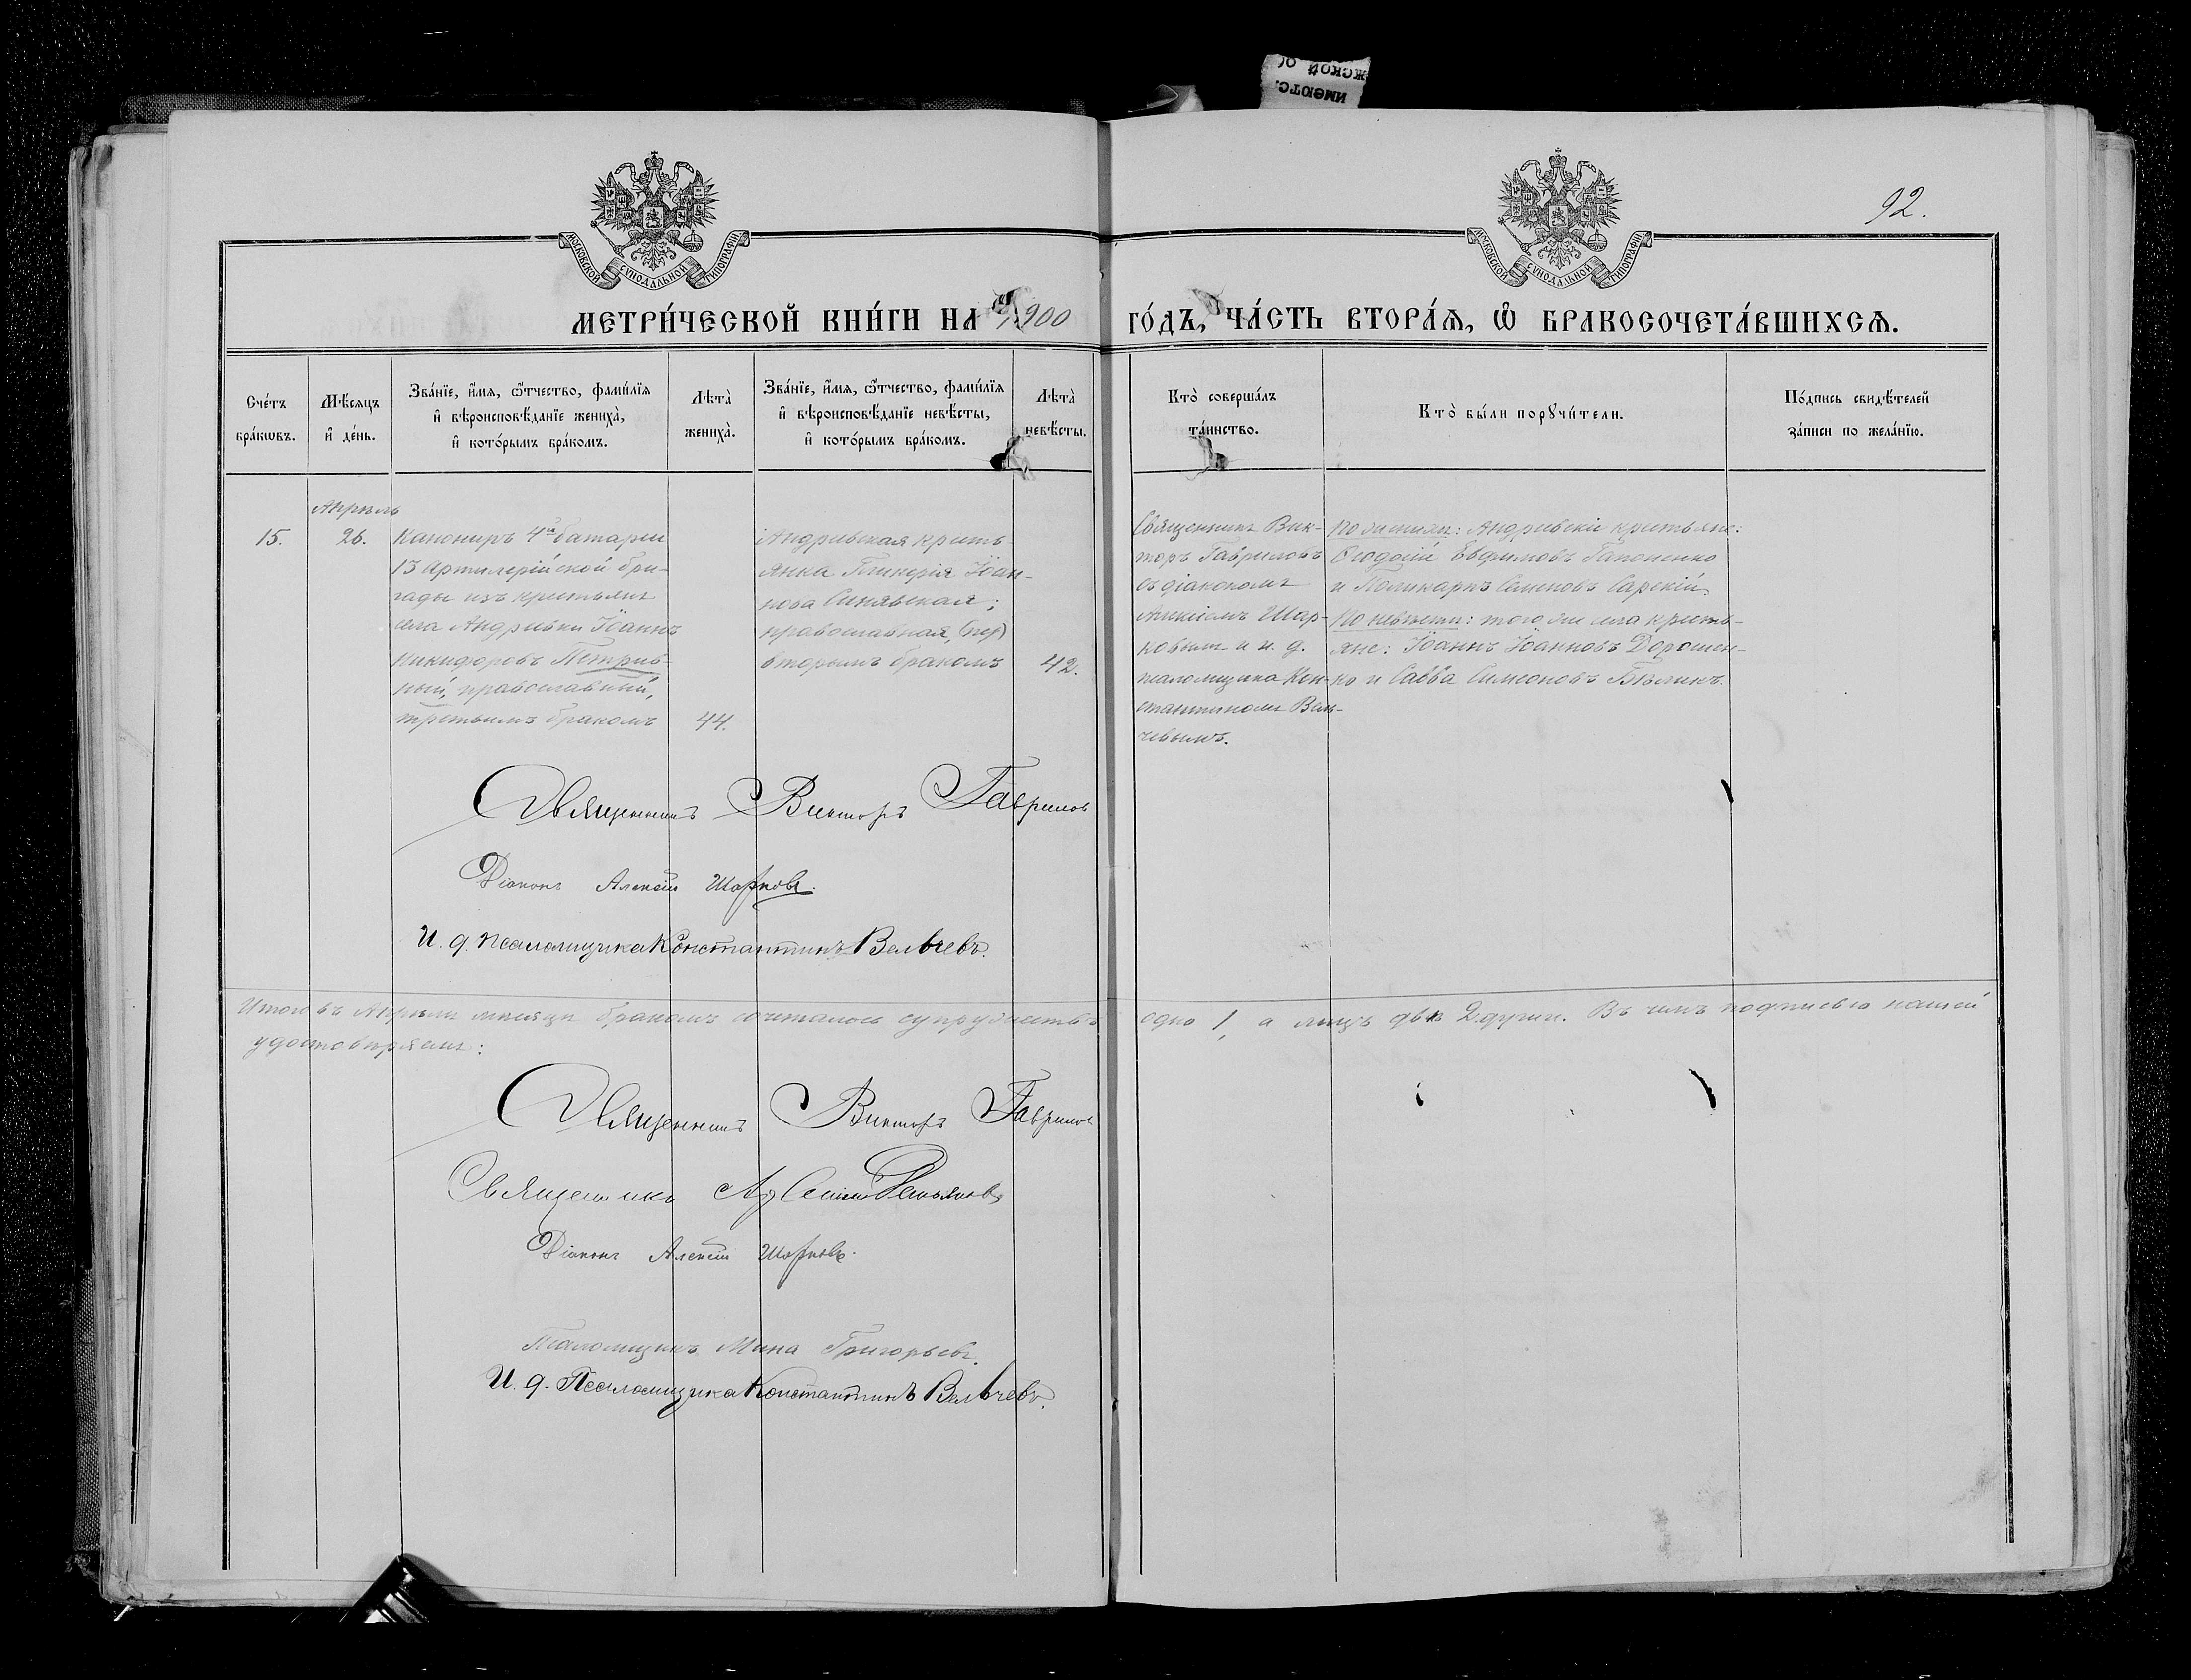 92.
МОСКОВСКОЙ СѴНОДАЛЬНОЙ ТИПОГРАФІИ
МОСКОВСКОЙ СѴНОДАЛЬНОЙ ТИПОГРАФІИ
МЕТРИ́ЧЕСКОЙ КНИ́ГИ НА 1900 ГО́ДЪ, ЧА́СТЬ ВТОРА́Ѧ, Ѽ БРАКОСОЧЕТА́ВШИХСѦ.
Сче́тъ
бра́кѡвъ.
Мѣ́сяцъ
и҆ де́нь.
Зва́нїе, и҆́мя, ѻ҆́тчество, фами́лїя
и҆ вѣроисповѣ́данїе жениха̀,
и҆ кото́рымъ бра́комъ.
Лѣта̀
жениха̀.
Зва́нїе, и҆́мя, ѻ҆́тчество, фами́лїя
и҆ вѣроисповѣ́данїе невѣ́сты,
и҆ кото́рымъ бра́комъ.
Лѣта̀
невѣ́сты.
Кто̀ соверша́лъ
та́инство.
Кто̀ бы́ли порꙋчи́тели.
По́дпись свидѣ́телей
за́писи по жела́нїю.
Апрѣль
15.
26.
Канониръ 4й батареи
13 Артилерійской бри-
гады изъ крестьянъ
села Андреевки Іоаннъ
Никифоровъ Петрив-
ный, православный,
третьимъ бракомъ
44.
Андреевская кресть-
янка Гликерія Іоан-
нова Синявская;
православная, (пер)
вторымъ бракомъ
42.
Священникъ Вик-
торъ Гавриловъ
съ діакономъ
Алексіемъ Шар-
ковымъ и и. д.
псаломщика Кон-
стантиномъ Вель-
чевымъ.
По женихѣ: Андреевскіе крестьяне:
Ѳеодосій Евфимовъ Гапоненко
и Поликарпъ Семеновъ Сарскій.
По невѣстѣ: того же села кресть-
яне: Іоаннъ Іоанновъ Дорошен-
ко и Савва Симеоновъ Бѣликъ.
Священникъ Викторъ Гаврилов
Діаконъ Алексій Шарковъ.
И. д. псаломщика Константинъ Вельчевъ.
Итого въ Апрѣлѣ мѣсяцѣ бракомъ сочеталось супружествъ одно 1, а лицъ двѣ 2. Въ чемъ подписью нашей
удостовѣряемъ:
Священникъ Викторъ Гаврилов
Священникъ
Діаконъ Алексій Шарковъ.
Псаломщикъ Мина Григорьевъ.
И. д. Псаломщика Константинъ Вельчевъ.